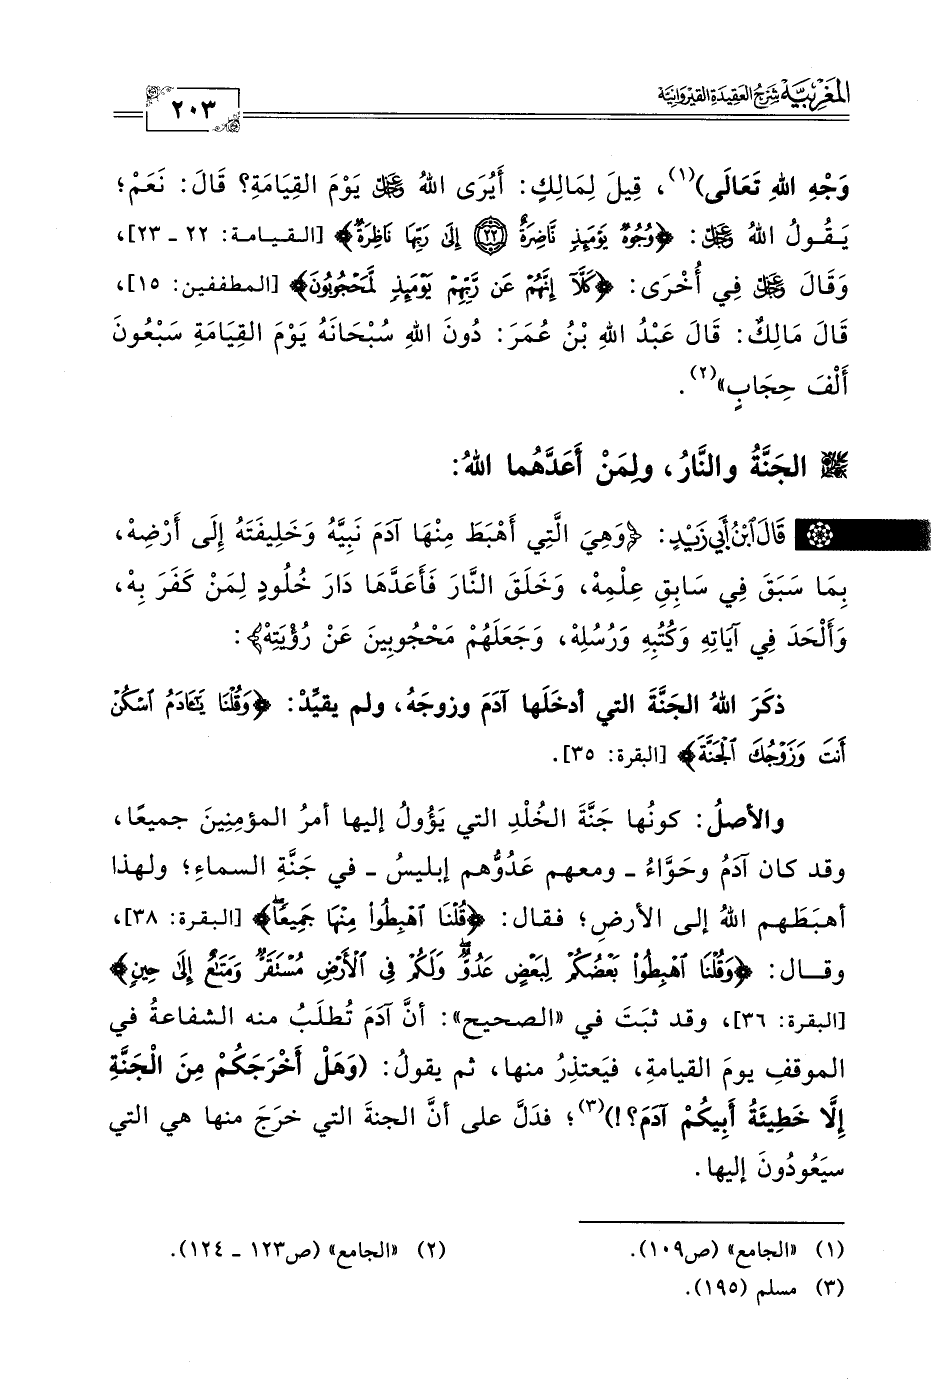 المغربية شرح العقيدة القيروانية
٢٠٣
وَجْهِ اللهِ تَعَالَى)(١)، قِيلَ لِمَالِكٍ: أَيُرَى اللهُ ﷻ يَوْمَ القِيَامَةِ؟ قَالَ: نَعَمْ؛
يَقُولُ اللهُ ﷻ: ﴿وُجُوهٌ يَوْمَئِذٍ نَّاضِرَةٌ ٢٢ إِلَى رَبِّهَا نَاظِرَةٌ﴾ [القيامة: ٢٢ - ٢٣]،
وَقَالَ ﷻ فِي أُخْرَى: ﴿كَلَّآ إِنَّهُمْ عَن رَّبِّهِمْ يَوْمَئِذٍ لَّمَحْجُوبُونَ﴾ [المطففين: ١٥]،
قَالَ مَالِكٌ: قَالَ عَبْدُ اللهِ بْنُ عُمَرَ: دُونَ اللهِ سُبْحَانَهُ يَوْمَ القِيَامَةِ سَبْعُونَ
أَلْفَ حِجَابٍ»(٢).
الجَنَّةُ والنَّارُ، ولِمَنْ أَعَدَّهُما اللهُ:
قَالَ ابْنُ أَبِي زَيْدٍ: ﴿وَهِيَ الَّتِي أَهْبَطَ مِنْهَا آدَمَ نَبِيَّهُ وَخَلِيفَتَهُ إِلَى أَرْضِهْ،
بِمَا سَبَقَ فِي سَابِقِ عِلْمِهْ، وَخَلَقَ النَّارَ فَأَعَدَّهَا دَارَ خُلُودٍ لِمَنْ كَفَرَ بِهْ،
وَأَلْحَدَ فِي آيَاتِهِ وَكُتُبِهِ وَرُسُلِهْ، وَجَعَلَهُمْ مَحْجُوبِينَ عَنْ رُؤْيَتِهْ﴾:
ذكَرَ اللهُ الجَنَّةَ التي أدخلَها آدَمَ وزوجَهُ، ولم يقيِّدْ: ﴿وَقُلْنَا يَٰٓـَٔادَمُ ٱسْكُنْ
أَنتَ وَزَوْجُكَ ٱلْجَنَّةَ﴾ [البقرة: ٣٥].
والأصلُ: كونُها جَنَّةَ الخُلْدِ التي يَؤُولُ إليها أمرُ المؤمِنِينَ جميعًا،
وقد كان آدَمُ وحَوَّاءُ - ومعهم عَدُوُّهم إبليسُ - في جَنَّةِ السماءِ؛ ولهذا
أهبَطَهم اللهُ إلى الأرضِ؛ فقال: ﴿قُلْنَا ٱهْبِطُوا۟ مِنْهَا جَمِيعًا﴾ [البقرة: ٣٨]،
وقال: ﴿وَقُلْنَا ٱهْبِطُوا۟ بَعْضُكُمْ لِبَعْضٍ عَدُوٌّ وَلَكُمْ فِى ٱلْأَرْضِ مُسْتَقَرٌّ وَمَتَٰعٌ إِلَىٰ حِينٍ﴾
[البقرة: ٣٦]، وقد ثبَتَ في «الصحيح»: أنَّ آدَمَ تُطلَبُ منه الشفاعةُ في
الموقفِ يومَ القيامةِ، فيَعتذِرُ منها، ثم يقولُ: (وَهَلْ أَخْرَجَكُمْ مِنَ الْجَنَّةِ
إِلَّا خَطِيئَةُ أَبِيكُمْ آدَمَ؟!)(٣)؛ فدَلَّ على أنَّ الجنةَ التي خرَجَ منها هي التي
سيَعُودُونَ إليها.
(١) «الجامع» (ص١٠٩).
(٢) «الجامع» (ص١٢٣ - ١٢٤).
(٣) مسلم (١٩٥).